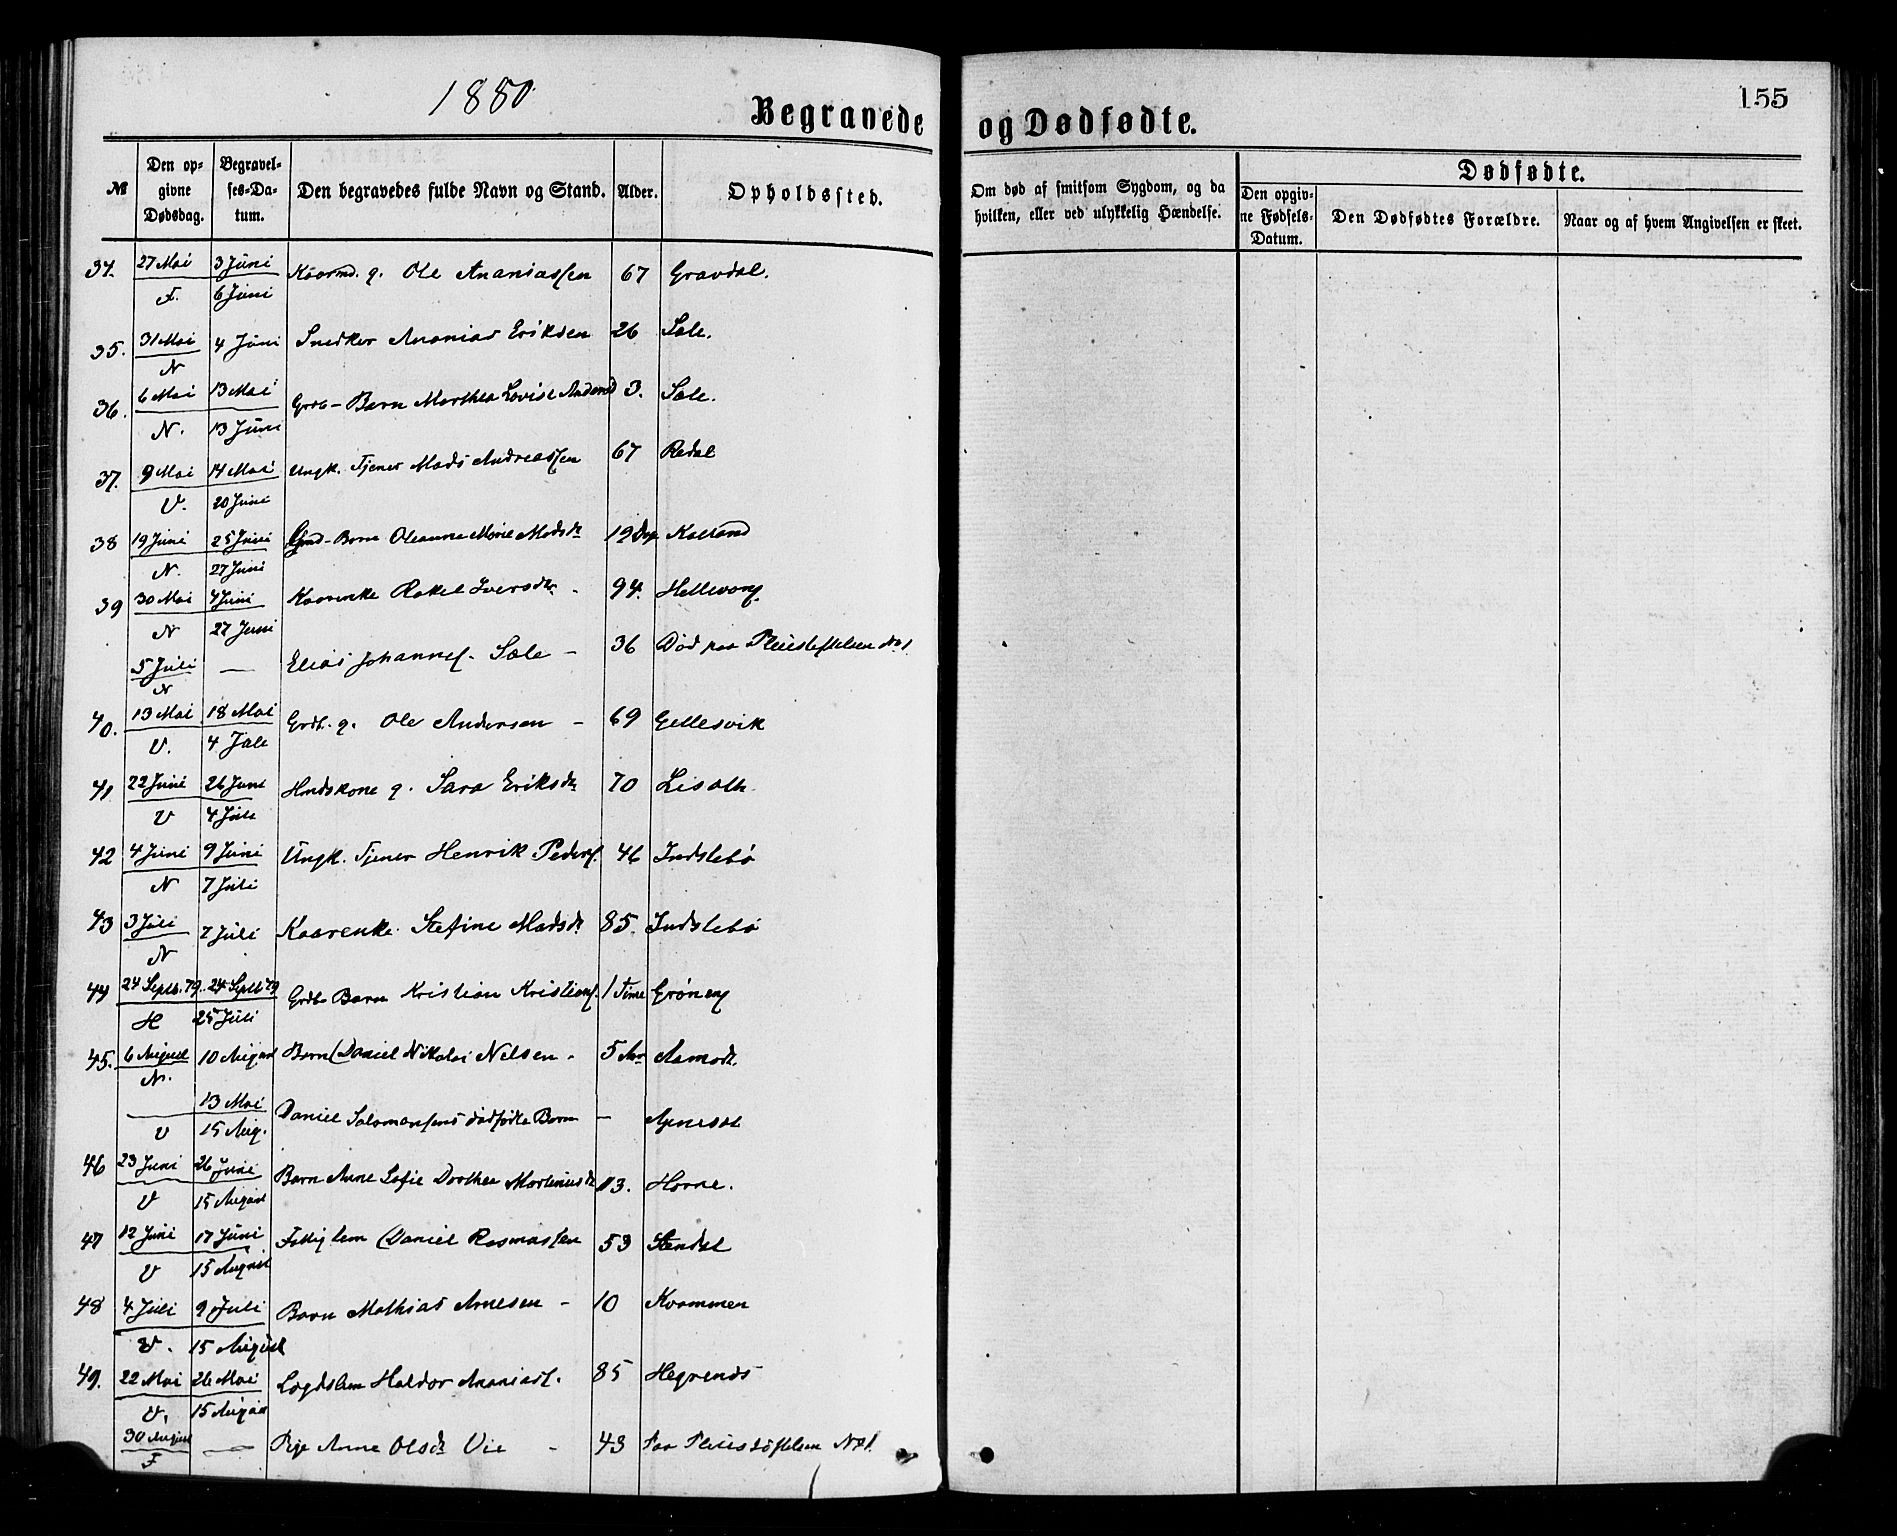 1880
155
Begravede og Dødfødte.
№
Den opgivne Dødsdag.
Begravelses-Datum.
Den begravedes fulde Navn og Stand.
Alder.
Opholdssted.
Om død af smitsom Sygdom, og da hvilken, eller ved ulykkelig Hændelse.
Dødfødte.
Den opgivne Fødsels-Datum.
Den Dødfødtes Forældre.
Naar og af hvem Angivelsen er skeet.
34. 27 Mai 3 Juni Kaarmd. g. Ole Ananiassen 67 Gravdal.
F. 6 Juni
35. 31 Mai 4 Juni Snedker Ananias Eriksen 26 Sæle.
N
36. 6 Mai 13 Mai Grdb- Barn Marthea Lovise Andersd 3. Sæle.
N. 13 Juni
37. 9 Mai 14 Mai Ungk. Tjener Mads Andreassen 67 Redal
V. 20 Juni
38 19 Juni 25 Juni Barn Oleanna Marie Madsdr 19 Dge
N. 27 Juni
39 30 Mai 4 Juni Kaarenke Rakel Iversdr. - 94.
N 27 Juni
5 Juli — Elias Johannes. Sæle - 36 Død paa Pleiestiftelsen No 1
N
40. 13 Mai 18 Mai Grdb. g. Ole Andersen - 69 Gellesvik
V. 4 Jule
41 22 Juni 26 Juni Hmdskone g. Sara Eriksdr 70
V 4 Jule
42 4 Juni 9 Juni Ungk. Tjener Henrik Peders. 46 Indslebø
N 7 Juli
43 3 Juli 7 Juli Kaarenke. Stefine Madsdr 85. Indslebø
N
44 24 Septb. 79. 24 Septb 79 Grdb Barn Kristian Kristians. 1 Time Grøneng
H 25 Juli
45. 6 August 10 August Barn Daniel Nikolai Nelsen - 5 Aar Aamodt.
N.
— 13 Mai Daniel Salomonsens dødfødte Barn —
V 15 Aug.
46 23 Juni 26 Juni Barn Anne Sofie Dorthea Martinusdr 13. Horne.
V 15 August
47 12 Juni 17 Juni Fattiglem Daniel Rasmussen 53 Stendal
V 15 August
48 4 Juli 9 Juli Barn Mathias Arnesen - 10 Kvammen
V. 15 August
49. 22 Mai 26 Mai Lægdslem Haldor Ananias. 85 Hegrenæs
V. 15 August
30 August — Pige Anne Olsdr Vie - 43 Paa Pleiestiftelsen No 1.
F